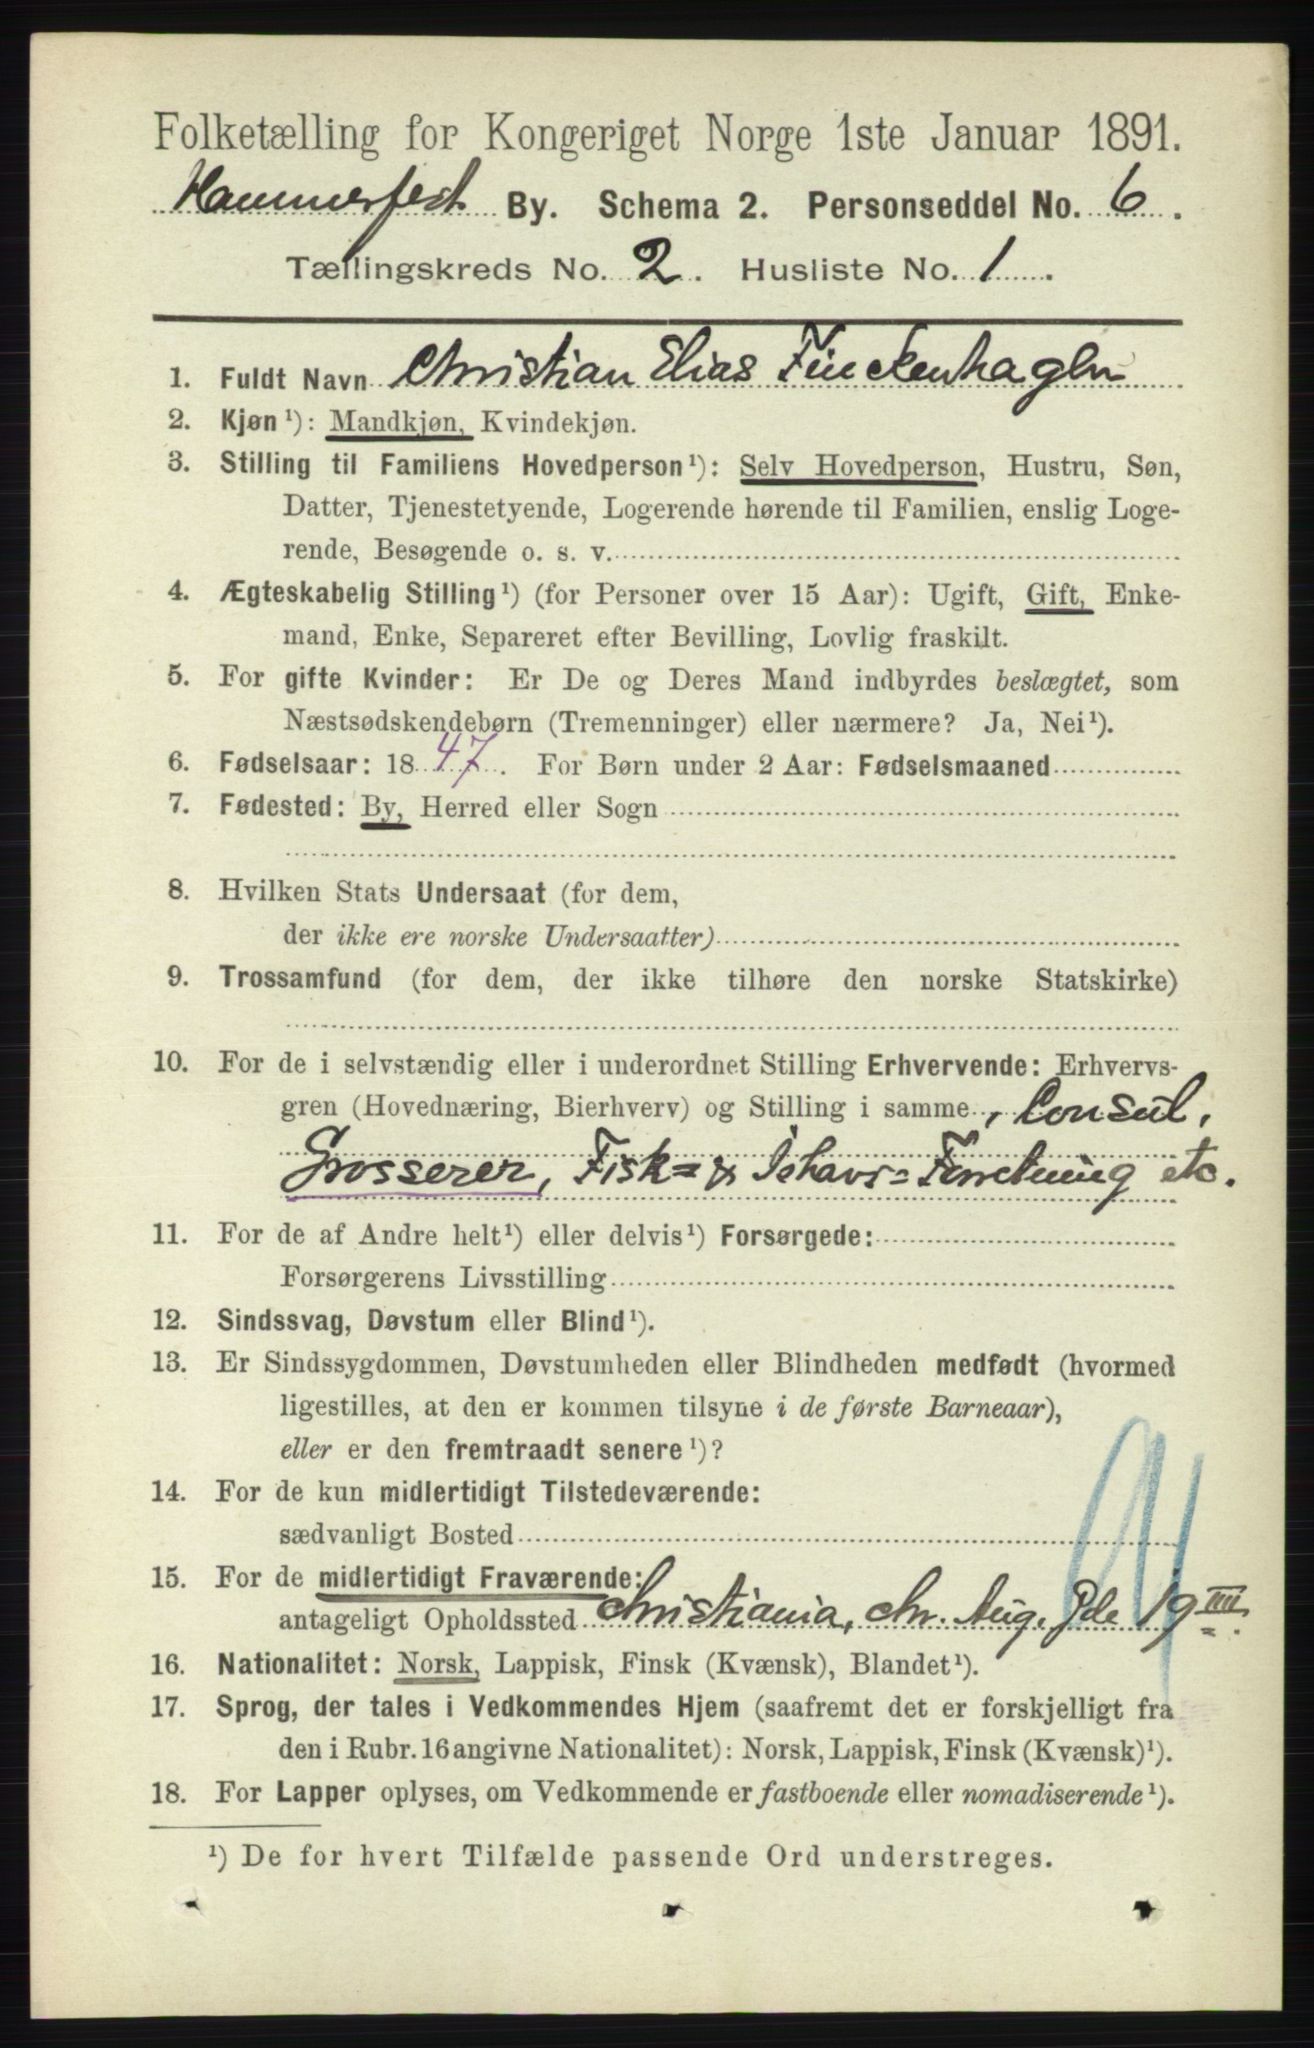 Folketælling for Kongeriget Norge 1ste Januar 1891.
Hammerfest By. Schema 2. Personseddel No. 6.
Tællingskreds No. 2. Husliste No. 1.
1. Fuldt Navn Christian Elias Finckenhagen
2. Kjøn¹): Mandkjøn, Kvindekjøn.
3. Stilling til Familiens Hovedperson¹): Selv Hovedperson, Hustru, Søn,
Datter, Tjenestetyende, Logerende hørende til Familien, enslig Loge-
rende, Besøgende o. s. v.
4. Ægteskabelig Stilling¹) (for Personer over 15 Aar): Ugift, Gift, Enke-
mand, Enke, Separeret efter Bevilling, Lovlig fraskilt.
5. For gifte Kvinder: Er De og Deres Mand indbyrdes beslægtet, som
Næstsødskendebørn (Tremenninger) eller nærmere? Ja, Nei¹).
6. Fødselsaar: 1847. For Børn under 2 Aar: Fødselsmaaned
7. Fødested: By, Herred eller Sogn
8. Hvilken Stats Undersaat (for dem,
der ikke ere norske Undersaatter)
9. Trossamfund (for dem, der ikke tilhøre den norske Statskirke)
10. For de i selvstændig eller i underordnet Stilling Erhvervende: Erhvervs-
gren (Hovednæring, Bierhverv) og Stilling i samme, Consul,
Grosserer, Fisk= & Ishavs=Forretning etc.
11. For de af Andre helt¹) eller delvis¹) Forsørgede:
Forsørgerens Livsstilling
12. Sindssvag, Døvstum eller Blind¹).
13. Er Sindssygdommen, Døvstumheden eller Blindheden medfødt (hvormed
ligestilles, at den er kommen tilsyne i de første Barneaar),
eller er den fremtraadt senere¹)?
14. For de kun midlertidigt Tilstedeværende:
sædvanligt Bosted
15. For de midlertidigt Fraværende:
antageligt Opholdssted Christiania, Chr. Aug. Gde 19 IIII.
16. Nationalitet: Norsk, Lappisk, Finsk (Kvænsk), Blandet¹).
17. Sprog, der tales i Vedkommendes Hjem (saafremt det er forskjelligt fra
den i Rubr. 16 angivne Nationalitet): Norsk, Lappisk, Finsk (Kvænsk)¹).
18. For Lapper oplyses, om Vedkommende er fastboende eller nomadiserende¹).
¹) De for hvert Tilfælde passende Ord understreges.